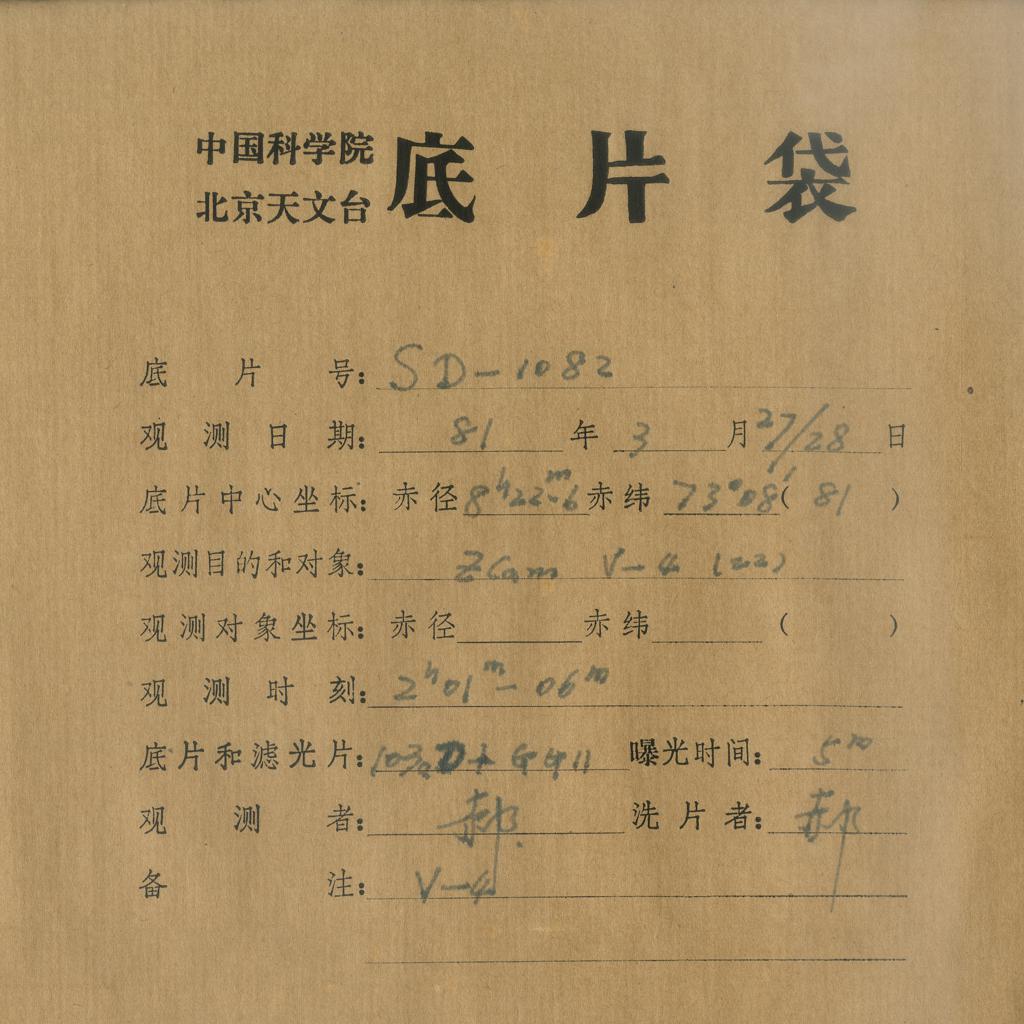 中国科学院
北京天文台
底片袋
底片号: SD-1082
观测日期: 81年3月27/28日
底片中心坐标: 赤径8ʰ22ᵐ.6赤纬73°08′(81)
观测目的和对象: ZCam V-4 (22)
观测对象坐标: 赤径 赤纬 ( )
观测时刻: 2ʰ01ᵐ-06ᵐ
底片和滤光片: 103aD+GG11 曝光时间: 5ᵐ
观测者: 郝 洗片者: 郝
备注: V-4